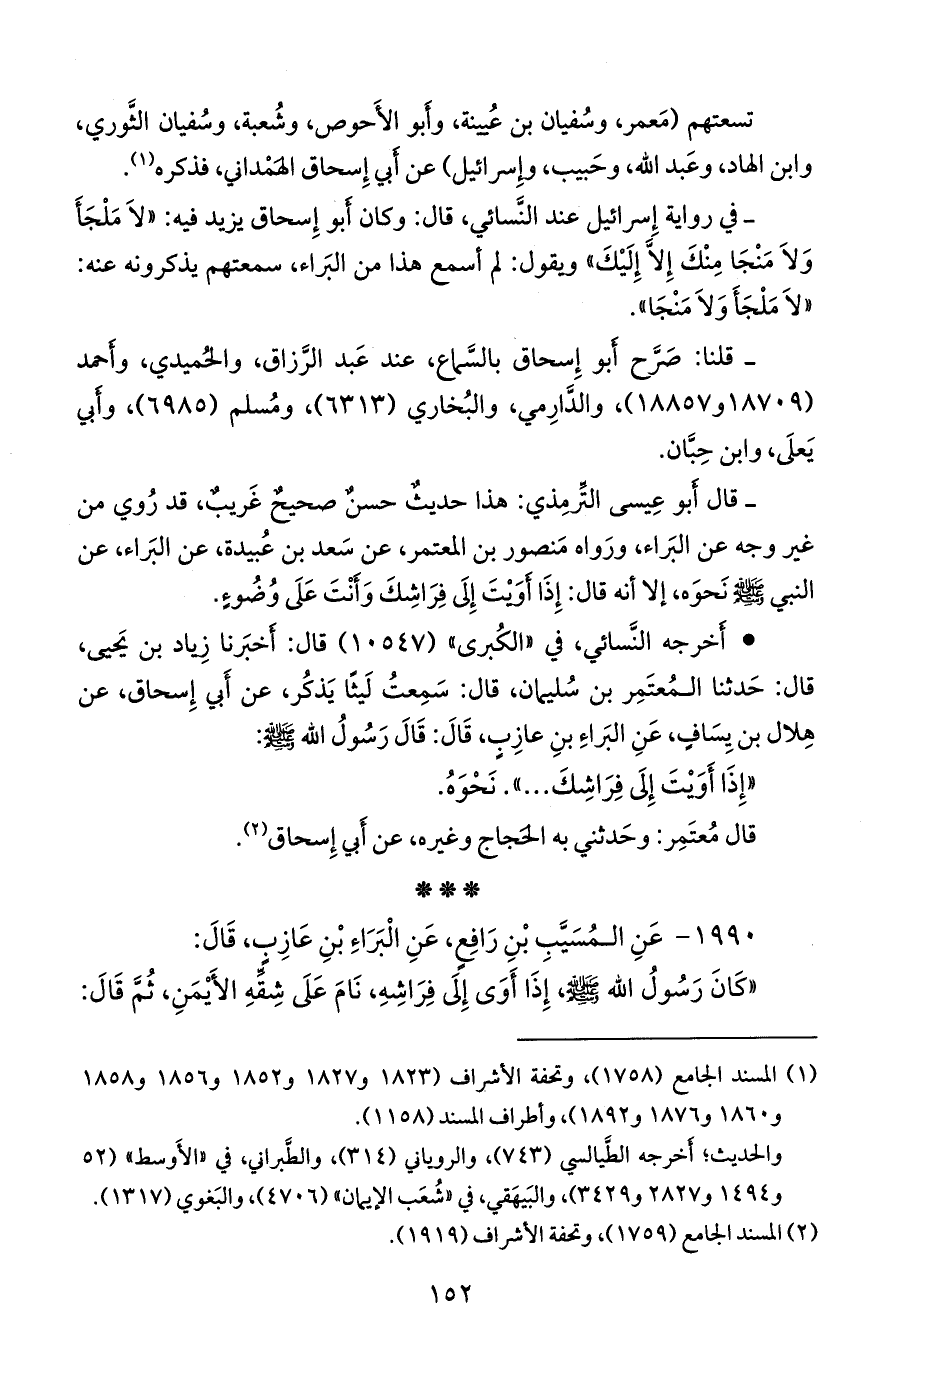 تسعتهم (مَعمر، وسُفيان بن عُيينة، وأَبو الأَحوص، وشُعبة، وسُفيان الثَّوري،
وابن الهاد، وعَبد الله، وحَبيب، وإِسرائيل) عن أَبي إِسحاق الهَمْداني، فذكره(١).
ـ في رواية إِسرائيل عند النَّسائي، قال: وكان أَبو إِسحاق يزيد فيه: «لاَ مَلْجَأَ
وَلاَ مَنْجَا مِنْكَ إِلاَّ إِلَيْكَ» ويقول: لم أسمع هذا من البَراء، سمعتهم يذكرونه عنه:
«لاَ مَلْجَأَ وَلاَ مَنْجَا».
ـ قلنا: صَرَّح أَبو إسحاق بالسَّماع، عند عَبد الرَّزاق، والحُميدي، وأَحمد
(١٨٧٠٩ و١٨٨٥٧)، والدَّارِمي، والبُخاري (٦٣١٣)، ومُسلم (٦٩٨٥)، وأَبي
يَعلَى، وابن حِبَّان.
ـ قال أَبو عِيسى التِّرمِذي: هذا حديثٌ حسنٌ صحيحٌ غَريبٌ، قد رُوي من
غير وجه عن البَراء، ورَواه مَنصور بن المعتمر، عن سَعد بن عُبيدة، عن البَراء، عن
النبي ﷺ نَحوَه، إلا أنه قال: إِذَا أَوَيْتَ إِلَى فِرَاشِكَ وَأَنْتَ عَلَى وُضُوءٍ.
• أَخرجه النَّسائي، في «الكُبرى» (١٠٥٤٧) قال: أَخبَرنا زِياد بن يَحيى،
قال: حَدثنا الـمُعتَمِر بن سُليمان، قال: سَمِعتُ لَيثًا يَذكُر، عن أَبي إِسحاق، عن
هِلال بن يِسَافٍ، عَنِ البَراءِ بنِ عازِبٍ، قَالَ: قَالَ رَسُولُ الله ﷺ:
«إِذَا أَوَيْتَ إِلَى فِرَاشِكَ...». نَحْوَهُ.
قال مُعتَمِر: وحَدثني به الحَجاج وغيره، عن أَبي إِسحاق(٢).
* * *
١٩٩٠- عَنِ الـمُسَيَّبِ بْنِ رَافِعٍ، عَنِ الْبَرَاءِ بْنِ عَازِبٍ، قَالَ:
«كَانَ رَسُولُ الله ﷺ، إِذَا أَوَى إِلَى فِرَاشِهِ، نَامَ عَلَى شِقِّهِ الأَيْمَنِ، ثُمَّ قَالَ:
(١) المسند الجامع (١٧٥٨)، وتحفة الأشراف (١٨٢٣ و١٨٢٧ و١٨٥٢ و١٨٥٦ و١٨٥٨
و١٨٦٠ و١٨٧٦ و١٨٩٢)، وأطراف المسند (١١٥٨).
والحديث؛ أَخرجه الطَّيالسي (٧٤٣)، والروياني (٣١٤)، والطَّبراني، في «الأَوسط» (٥٢
و١٤٩٤ و٢٨٢٧ و٣٤٢٩)، والبَيهَقي، في «شُعَب الإِيمان» (٤٧٠٦)، والبَغوي (١٣١٧).
(٢) المسند الجامع (١٧٥٩)، وتحفة الأشراف (١٩١٩).
١٥٢